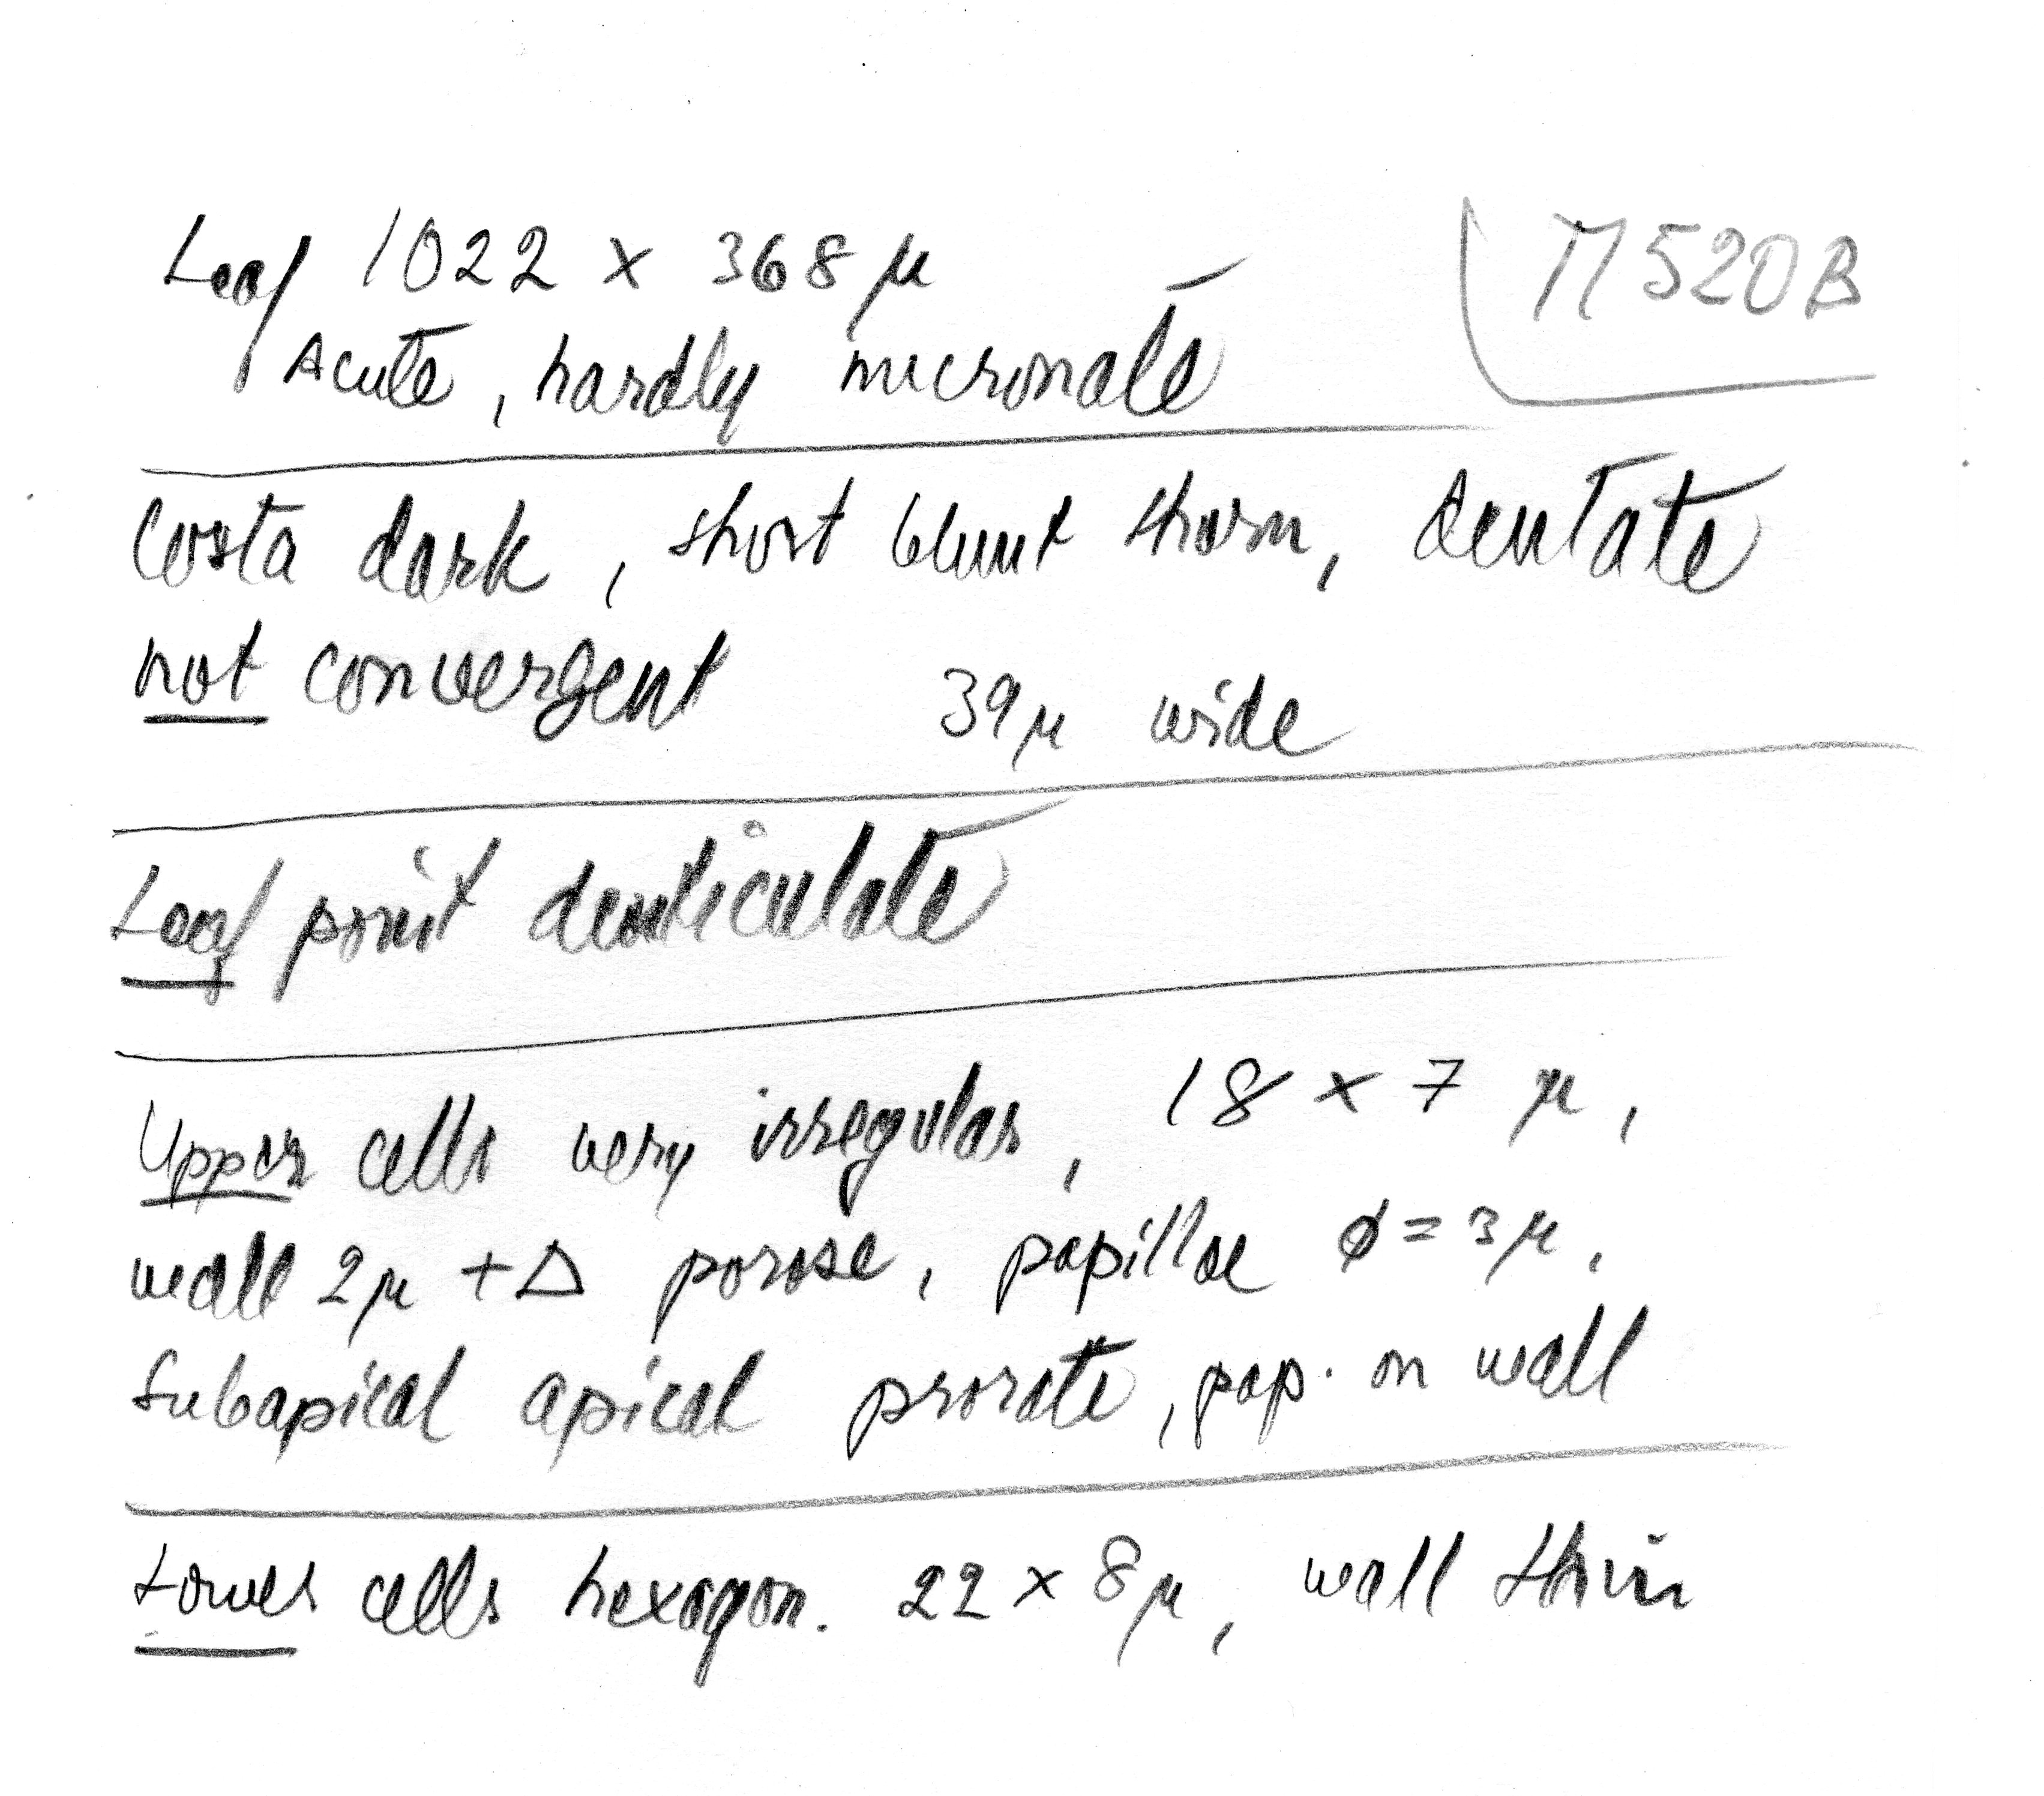 Leaf 1022 x 368 µ
M 520B
Acute, hardly mucronate
Costa dark, short blunt thorn, dentate
not convergent 39 µ wide
Leaf point denticulate
Upper cells very irregular, 18 x 7 µ,
wall 2µ + Δ porose, papillae ϕ = 3µ,
Subapical apical prorate, pap. on wall
Lower cells hexagon. 22 x 8µ, wall thin